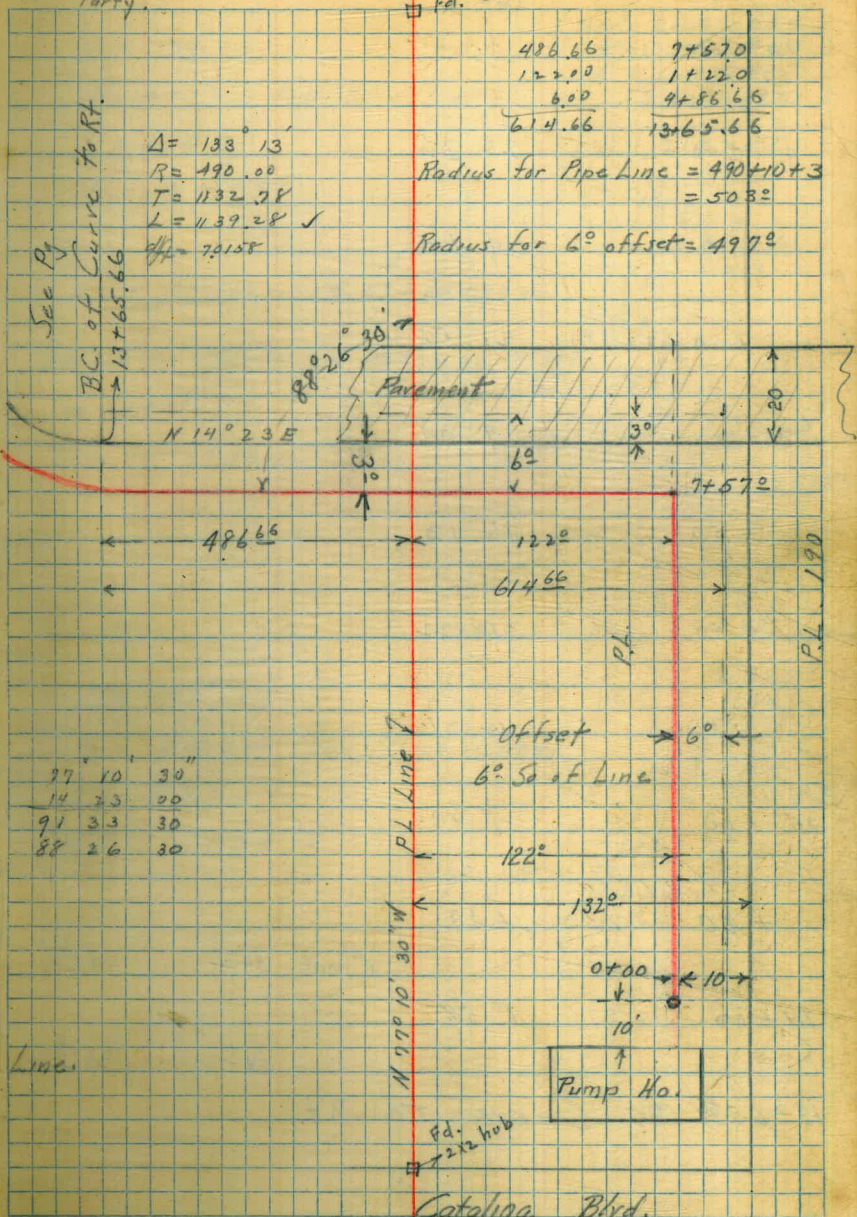 Party.
Fd.
486.66 7+57.0
122.00 1+22.0
6.00 4+86.66
614.66 13+65.66
Δ= 133° 13'
R= 490.00
T= 1132.78
L= 1139.28 ✓
Radius for Pipe Line = 490+10+3
= 503º
Radius for 6º offset = 497º
See Pg.
B.C. of Curve to Rt.
13+65.66
88° 26' 30"
Pavement
20
N 14° 23 E
3º
6º
3º
7+57º
486 66
122º
614 66
P.L.
P.L. 190
PL Line 7
Offset
6º
6º So of Line
77° 10' 30"
14 23 00
91 33 30
88 26 30
122º
132º
N 77° 10' 30" W
0+00
10
10'
Line.
Pump Ho.
Fd.
2x2 hub
Catalina Blvd.